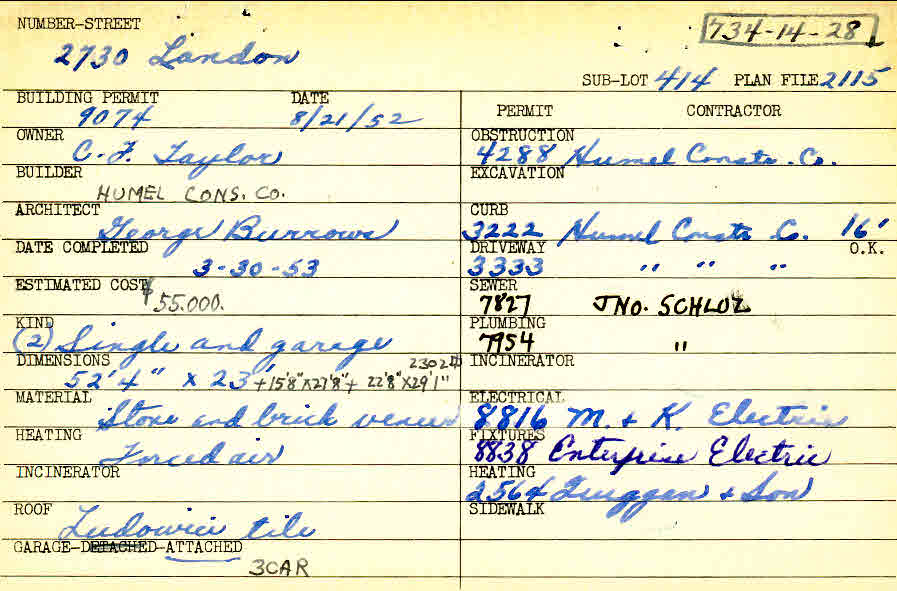 NUMBER-STREET
734-14-28
2730 Landon
SUB-LOT 414 PLAN FILE 2115
BUILDING PERMIT DATE
9074 8/21/52
OWNER
C. F. Taylor
BUILDER
HUMEL CONS. CO.
ARCHITECT
George Burrows
DATE COMPLETED
3-30-53
ESTIMATED COST
$55.000.
KIND
(2) Single and garage
DIMENSIONS 2302
52'4" x 23' + 15'8" x 27'8" + 22'8" x 29'1"
MATERIAL
Stone and brick veneer
HEATING
Forced air
INCINERATOR
ROOF
Ludowici tile
GARAGE-DETACHED-ATTACHED
3 CAR
PERMIT CONTRACTOR
OBSTRUCTION
4288 Humel Constr. Co.
EXCAVATION
CURB
3222 Humel Constr. Co. 16'
DRIVEWAY O.K.
3333 " " "
SEWER
7827 JNO. SCHLOZ
PLUMBING
7954 "
INCINERATOR
ELECTRICAL
8816 M. + K. Electric
FIXTURES
8838 Enterprise Electric
HEATING
2564 & Son
SIDEWALK